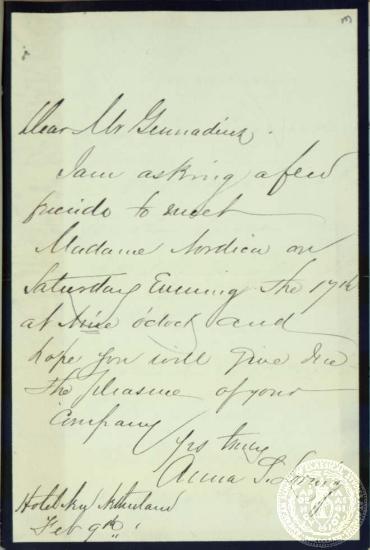 3
Dear Mr Gennadius.
I am asking a few
friends to meet
Madame Nordica on
Saturday Evening the 17th
at nine o'clock and
hope you will give me
the pleasure of your
Company
Yrs truly
Anna
Hotel New Netherland
Feb 9th